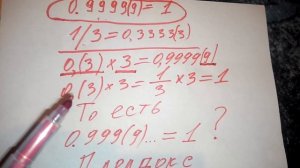 0.9999(9) = 1
1/3 = 0.3333(3)
0,(3) × 3 = 0,9999(9)
0,(3) × 3 = 1/3 × 3 = 1
То есть
0.999(9)... = 1 ?
Парадокс